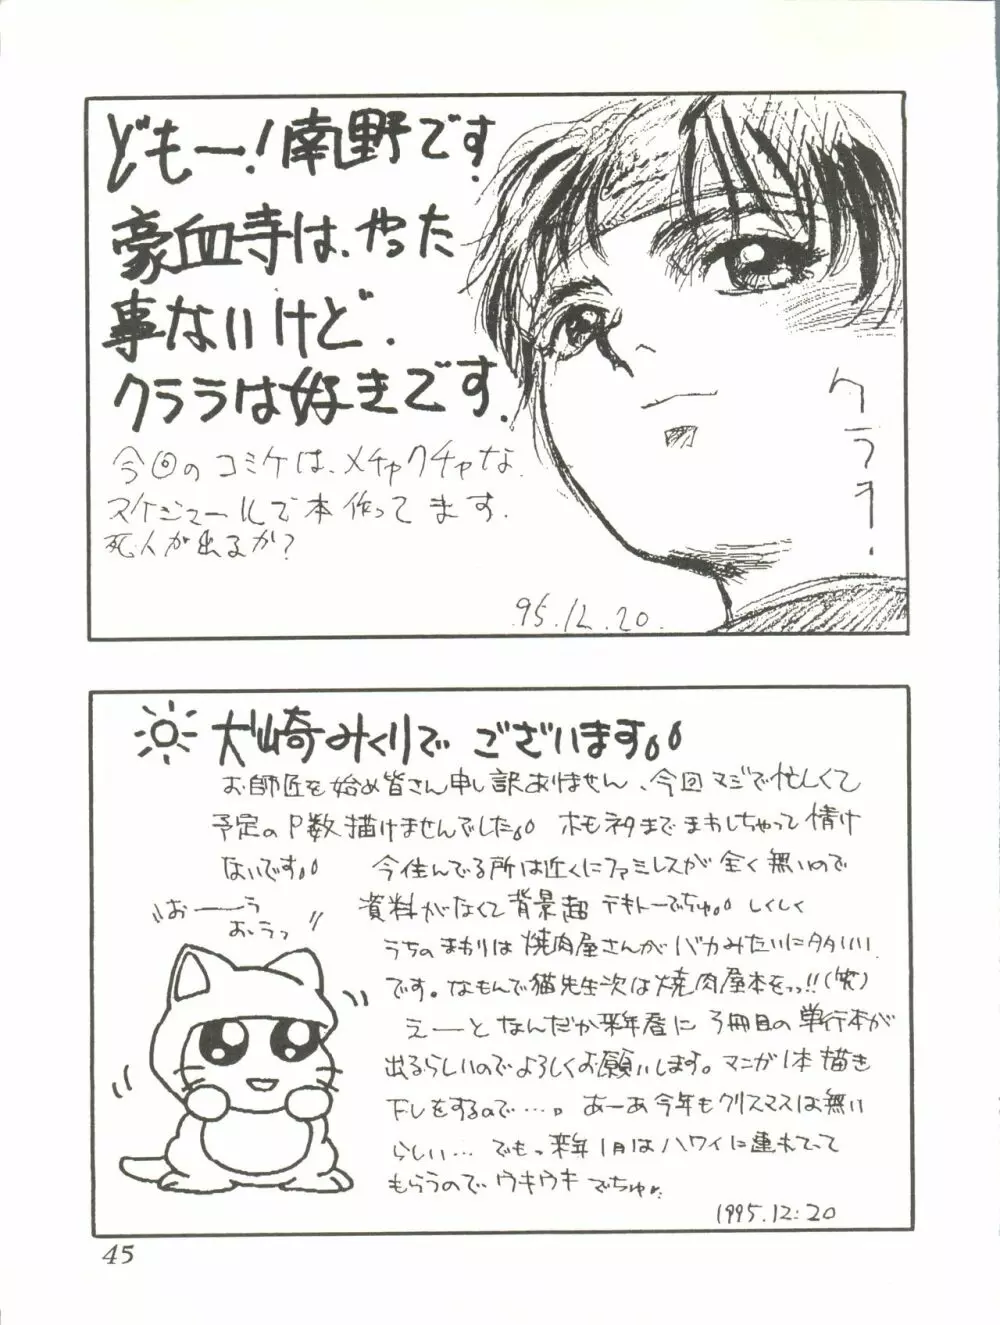 どもー!南野です.
豪血寺は、やった
事ないけど、
クララは好きです.
今回のコミケは、メチャクチャな
スケジュールで本作ってます.
死人が出るか?
クララ.
95.12.20.
犬崎みくりで ございます。。
お師匠を始め皆さん申し訳ありません、今回マジで忙しくて
予定のP数描けませんでした。。 ホモネタまでまわしちゃって情け
ないです。。 今住んでる所は近くにファミレスが全く無いので
資料がなくて背景超テキトーでちゅ。。しくしく
うちのまわりは焼肉屋さんがバカみたいに多い
です。なもんで猫先生次は焼肉屋本をっっ!!(笑)
えーと なんだか来年春に3冊目の単行本が
出るらしいのでよろしくお願いします。マンガ1本描き
下しをするので…。あーあ今年もクリスマスは無い
らしい… でもっ来年1月はハワイに連れてって
もらうので ウキウキ でちゅ
おーう
おうっ
1995.12.20
45